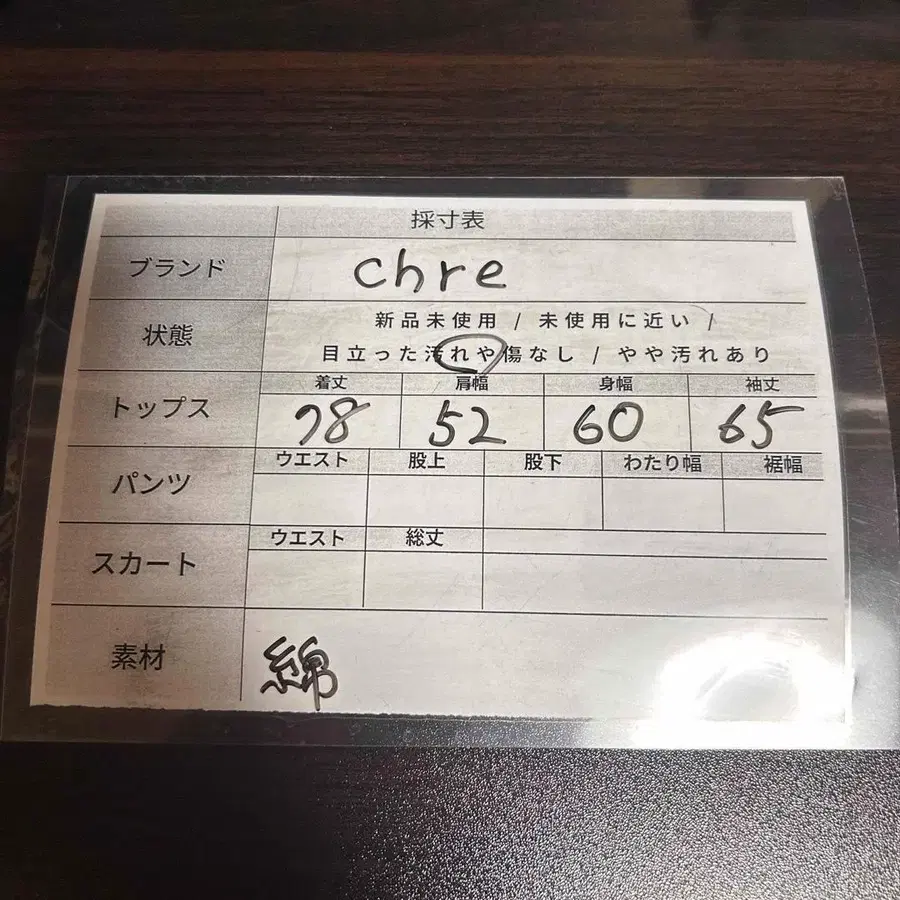 採寸表
ブランド chre
状態 新品未使用 / 未使用に近い /
目立った汚れや傷なし / やや汚れあり
トップス 着丈 肩幅 身幅 袖丈
78 52 60 65
パンツ ウエスト 股上 股下 わたり幅 裾幅
スカート ウエスト 総丈
素材 綿